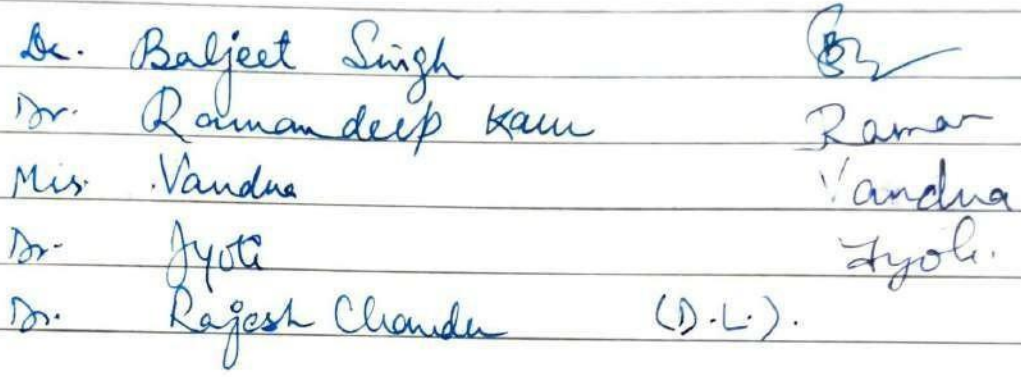 Dr. Baljeet Singh
Dr. Ramandeep Kaur Raman
Mis. Vandna Vandna
Dr. Jyoti Jyoti.
Dr. Rajesh Chander (D.L.).